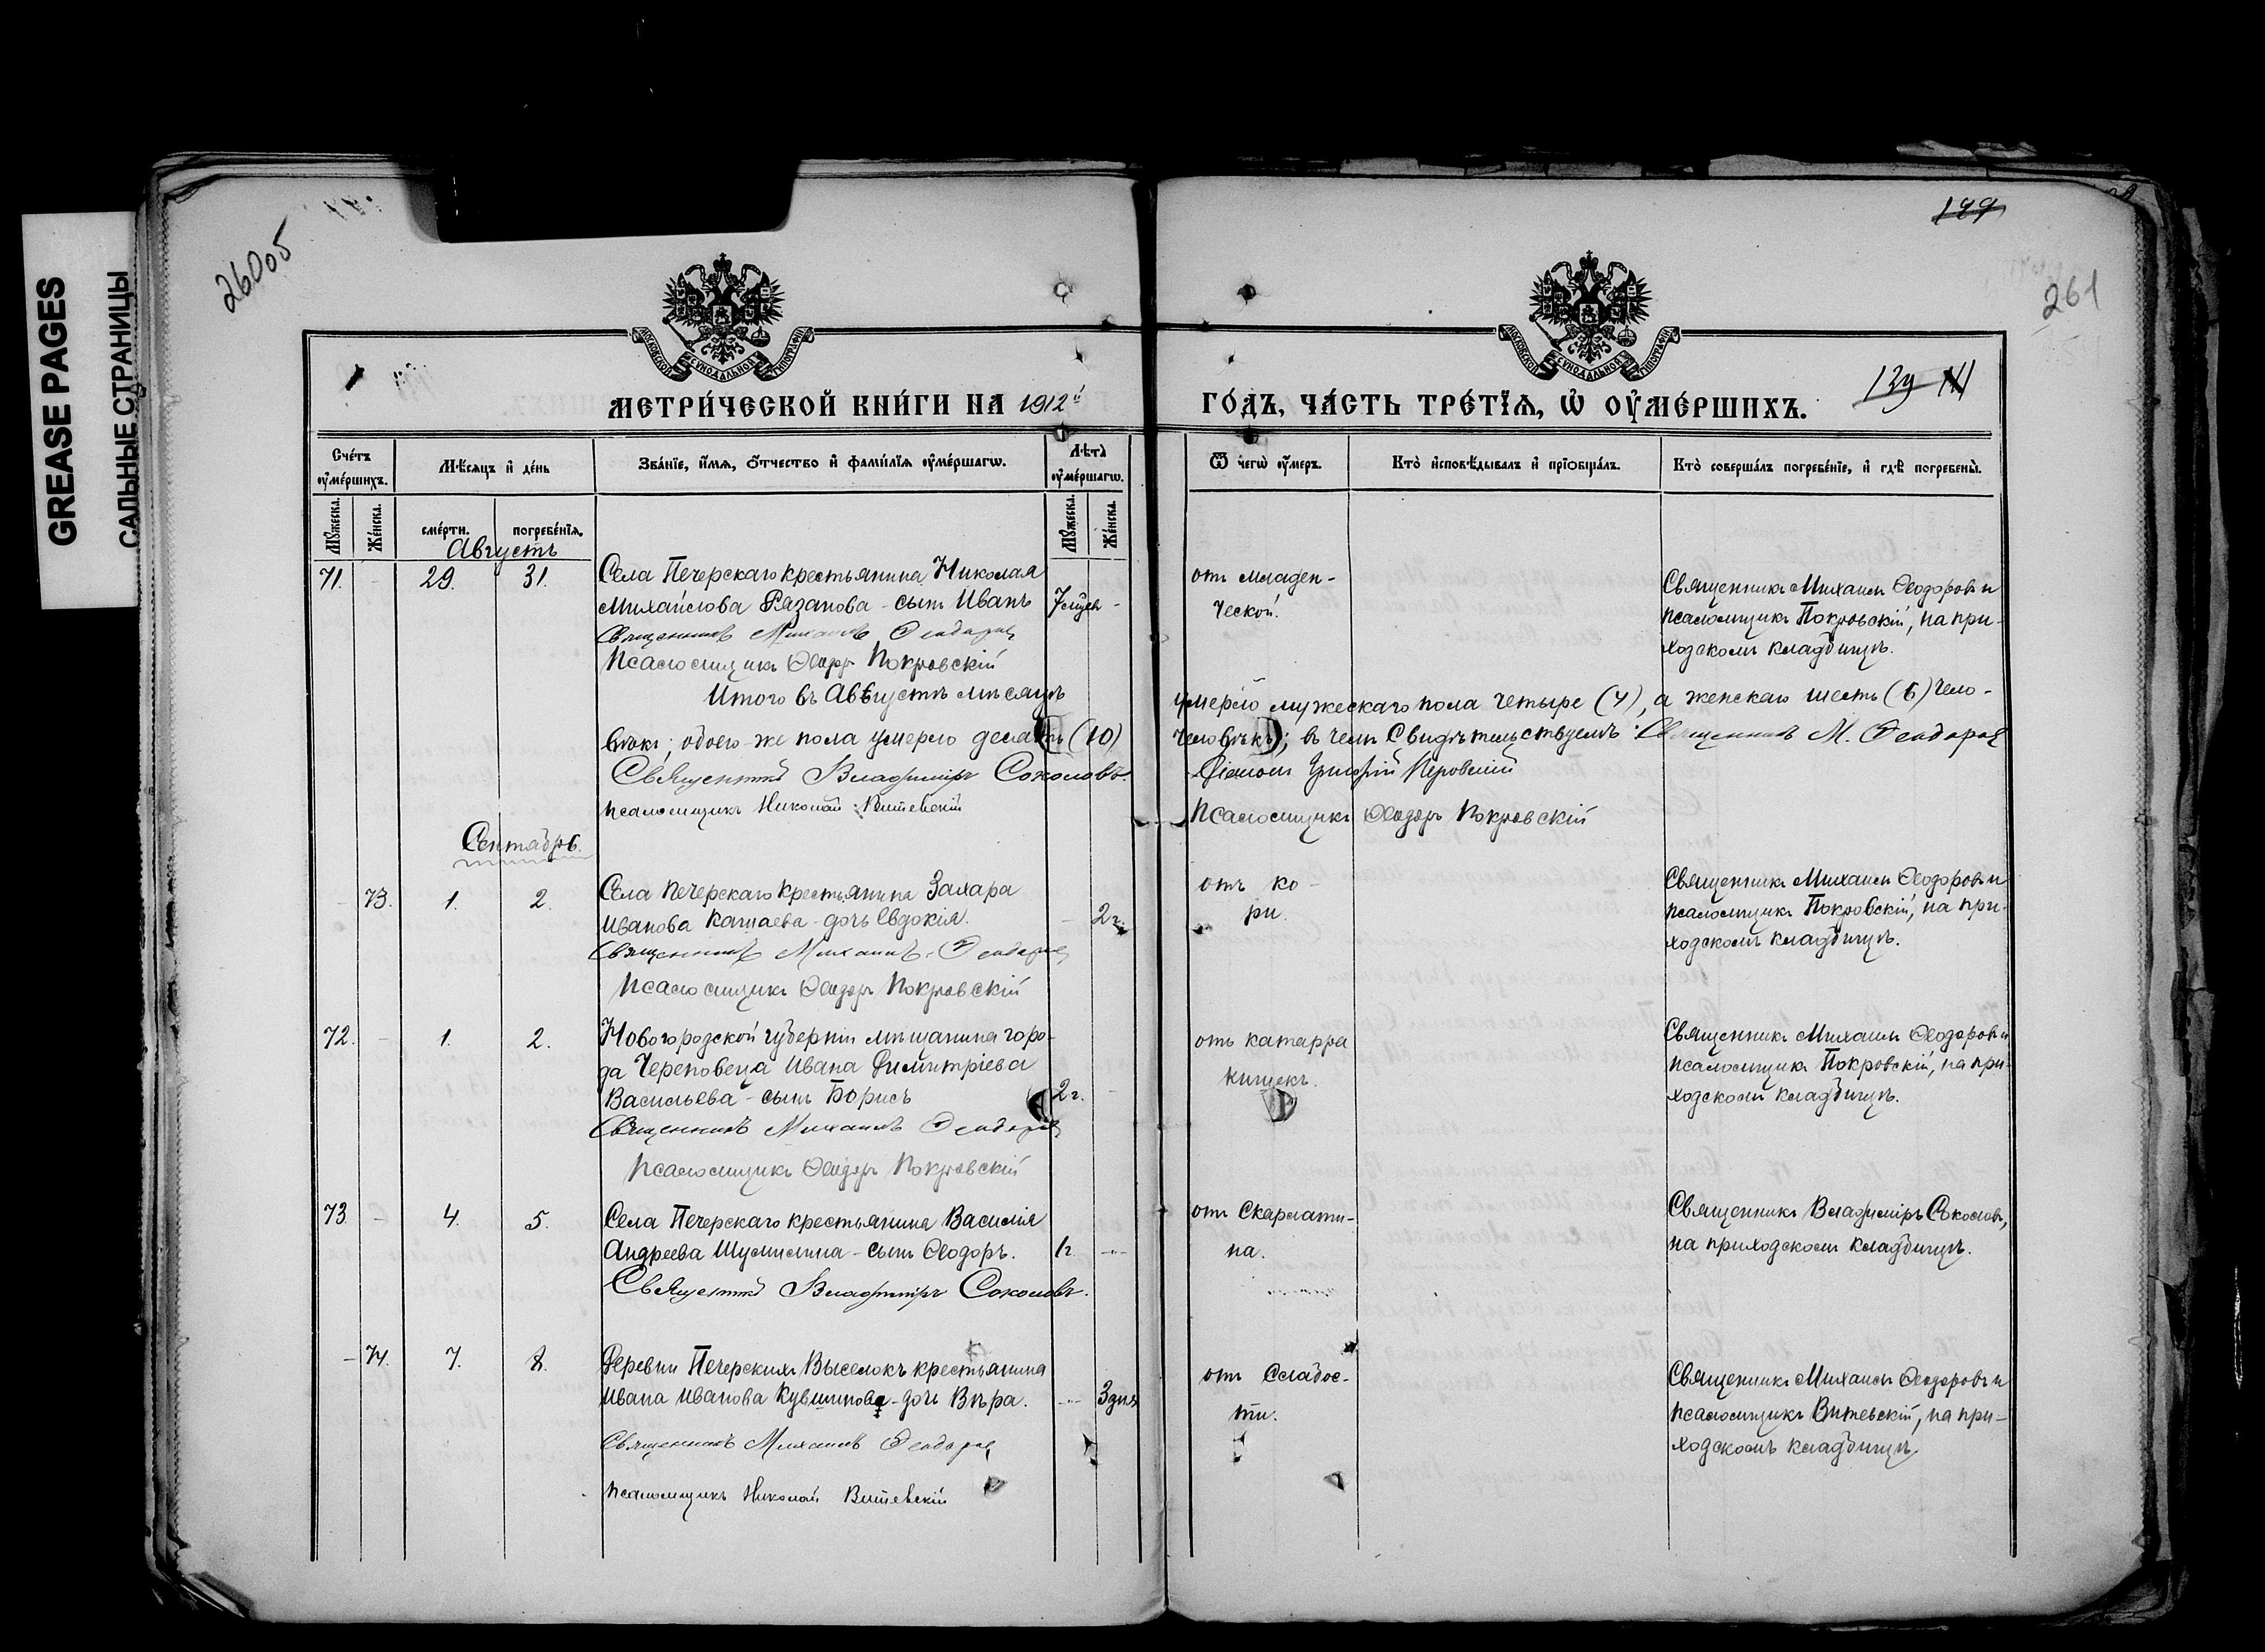 GREASE PAGES
САЛЬНЫЕ СТРАНИЦЫ
26005
149
261
139
МОСКОВСКОЙ СѴНОДАЛЬНОЙ ТИПОГРАФІИ
МОСКОВСКОЙ СѴНОДАЛЬНОЙ ТИПОГРАФІИ
МЕТРИ́ЧЕСКОЙ КНИ́ГИ НА 1912й
ГО́ДЪ, ЧА́СТЬ ТРЕ́ТІѦ, Ѡ҆ ОУ҆МЕ́РШИХЪ.
Сче́тъ оу҆ме́ршихъ.
Мѣ́сѧцъ и҆ де́нь
Зва́нїе, и҆́мѧ, ѻ҆́тчество и҆ фамі́лїѧ оу҆ме́ршагѡ.
Лѣ́та оу҆ме́ршагѡ.
Ѿ чегѡ̀ оу҆́меръ.
Кто̀ и҆сповѣ́дывалъ и҆ прїѻбща́лъ.
Кто̀ соверша́лъ погребе́нїе, и҆ гдѣ̀ погребены̀.
Мꙋ́жеска.
Же́нска.
сме́рти.
погребе́нїѧ.
Мꙋ́жеска.
Же́нска.
Августъ
71. - 29. 31. Села Печерскаго крестьянина Николая
Михайлова Рязанова - сынъ Иванъ
Священникъ Михаилъ Ѳеодоровъ
Псаломщикъ Ѳеодоръ Покровскій
отъ младен-
ческой.
Священникъ Михаилъ Ѳеодоровъ и
псаломщикъ Покровскій, на при-
ходскомъ кладбищѣ.
Итого въ Августѣ мѣсяцѣ умерло мужескаго пола четыре (4), а женскаго шесть (6) чело-
вѣкъ; обоего-же пола умерло десять (10) человѣкъ; въ чемъ свидѣтельствуемъ: Священникъ М. Ѳеодоровъ
Священникъ Владиміръ Соколовъ.
Діаконъ Григорій
псаломщикъ Николай Витевскій
Псаломщикъ Ѳеодоръ Покровскій
Сентябрь.
- 73. 1. 2. Села Печерскаго крестьянина Захара
Иванова Катаева - дочь Евдокія. - 2 г.
Священникъ Михаилъ Ѳеодоровъ
Псаломщикъ Ѳеодоръ Покровскій
отъ ко-
ри.
Священникъ Михаилъ Ѳеодоровъ и
псаломщикъ Покровскій, на при-
ходскомъ кладбищѣ.
72. - 1. 2. Новогородской губерніи мѣщанина горо-
да Череповеца Ивана Димитріева
Васильева - сынъ Борисъ 2 г. -
Священникъ Михаилъ Ѳеодоровъ
Псаломщикъ Ѳеодоръ Покровскій
отъ катарра
кишекъ.
Священникъ Михаилъ Ѳеодоровъ и
псаломщикъ Покровскій, на при-
ходскомъ кладбищѣ.
73 - 4. 5. Села Печерскаго крестьянина Василія
Андреева Шумилина - сынъ Ѳеодоръ. 1 г. -
Священникъ Владиміръ Соколовъ.
отъ Скарлати-
на.
Священникъ Владиміръ Соколовъ,
на приходскомъ кладбищѣ.
- 74. 7. 8. Деревни Печерскихъ Выселокъ крестьянина
Ивана Иванова Кувшинова - дочь Вѣра. - 3 дня
Священникъ Михаилъ Ѳеодоровъ
псаломщикъ Николай Витевскій
отъ Слабос-
ти.
Священникъ Михаилъ Ѳеодоровъ и
псаломщикъ Витевскій, на при-
ходскомъ кладбищѣ.